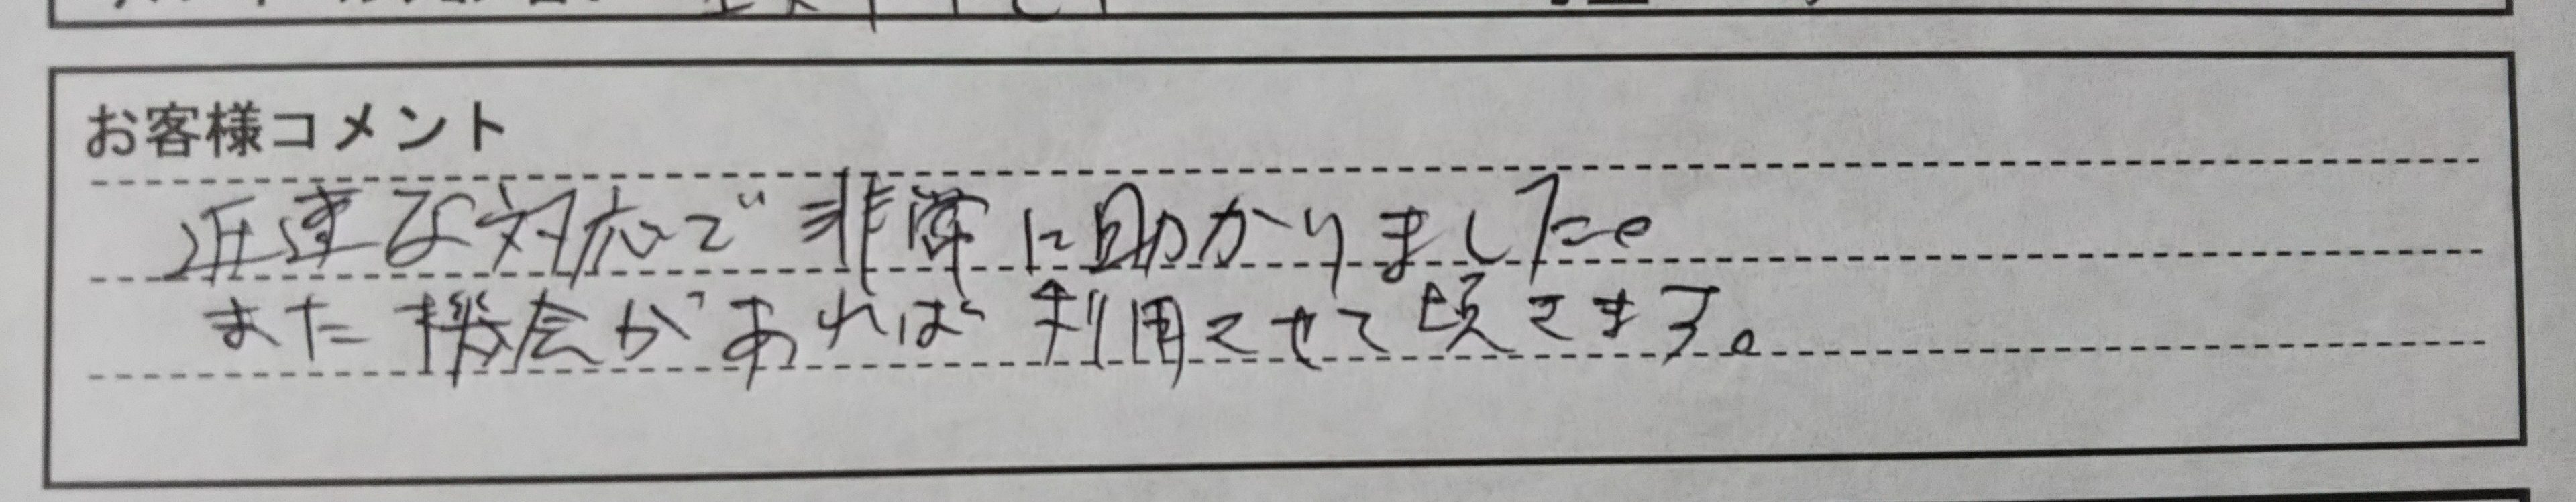 お客様コメント
迅速な対応で非常に助かりました。
また機会があれば利用させて頂きます。